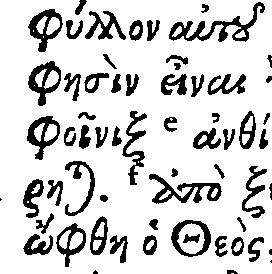 Φύλλον αὐτοῦ
Φησὶν εἶναι
Φοῖνιξ e ἀνθί
ρη). f ἀπὸ ξ
ὤφθη ὁ Θεὸς